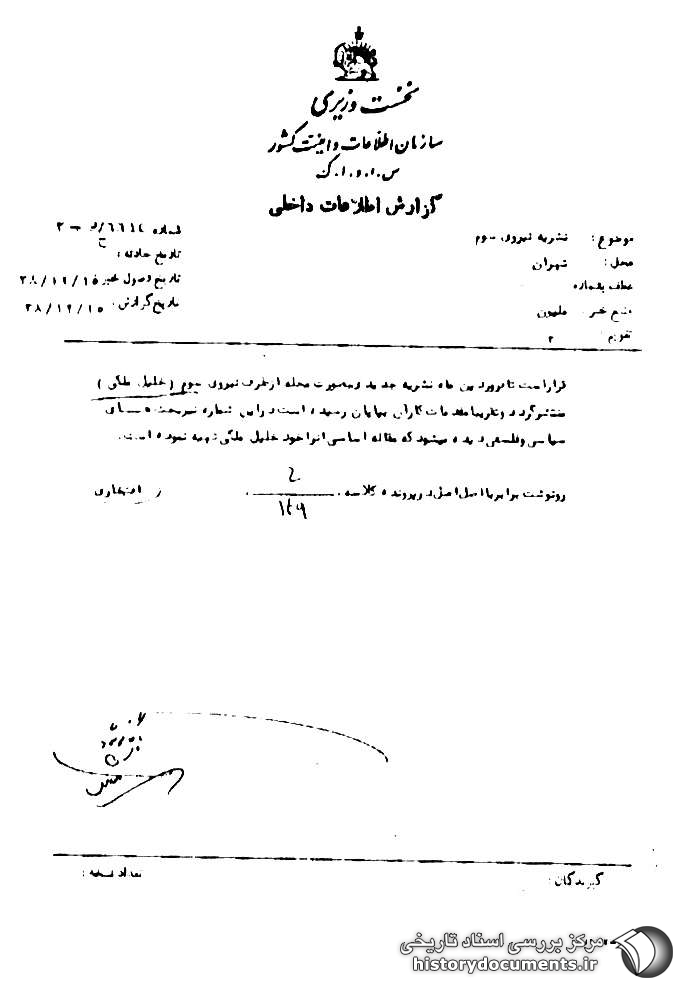 نخست وزیری
سازمان اطلاعات و امنیت کشور
س.ا.و.ا.ک
گزارش اطلاعات داخلی
موضوع: نشریه نیروی سوم
محل: تهران
عطف بشماره
منبع خبر: ملیون
تقویم: ۲
شماره
تاریخ حادثه:
تاریخ وصول خبر ۳۸/۱۲/۱۵
تاریخ گزارش: ۳۸/۱۲/۱۵
قرار است تا فروردین ماه نشریه جدید و بصورت مجله از طرف نیروی سوم (خلیل ملکی)
منتشر گردد و تقریبا مقدمات کار آن بپایان رسیده است در این شماره نیز بحث های
سیاسی و فلسفی دیده میشود که مقاله اساسی آنرا خود خلیل ملکی تهیه نموده است.
رونوشت برابر با اصل اصل در پرونده کلاسه
افتخاری
گیرندگان:
تعداد نسخه:
مرکز بررسی اسناد تاریخی
historydocuments.ir